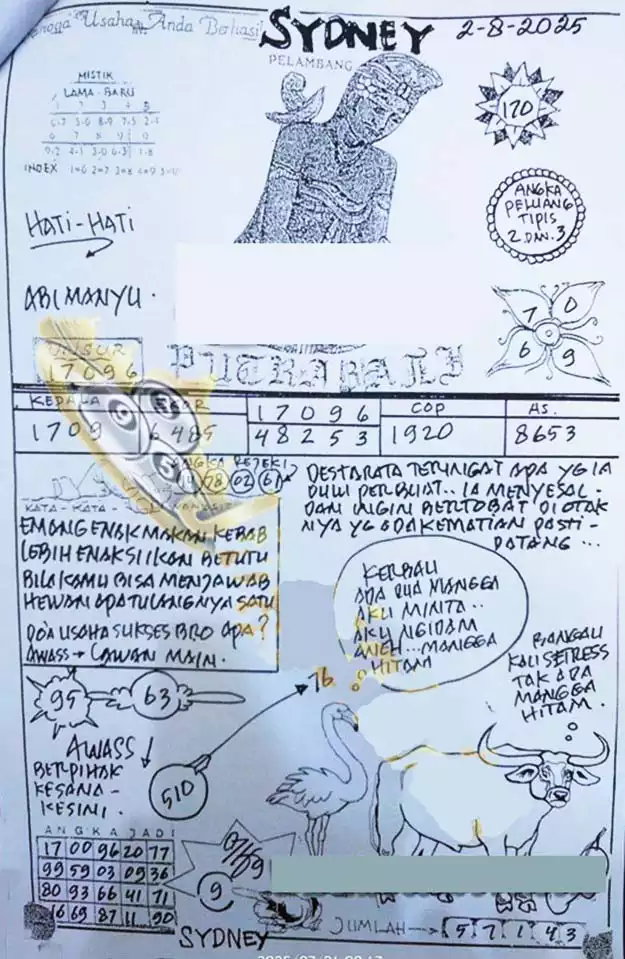 Usaha Anda Berhasil
SYDNEY
2-8-2025
PELAMBANG
MISTIK
LAMA - BARU
1 2 3 4 5
6 7 8 9 0
INDEX 1=6 2=7 3=8 4=9 5=0
120
ANGKA
PELUANG
TIPIS
2 DAN 3
HATI-HATI
ABIMANYU.
7 0
6 9
17096
PUTRA BALI
KEPALA
EKOR
17096
COP
AS.
1709
6485
48253
1920
8653
ANGKA REJEKI
28 02 61
DESTARATA TERINGAT APA YG IA
DULU PERBUAT.. IA MENYESAL -
DAN INGIN BERTOBAT DI OTAK
NYA YG ADA KEMATIAN PASTI -
DATANG ...
KATA - KATA -
EMANG ENAK MAKAN KEBAB
LEBIH ENAK SI IKAN BETUTU
BILA KAMU BISA MENJAWAB
HEWAN APA TULANGNYA SATU
DO'A USAHA SUKSES BRO APA?
AWASS → LAWAN MAIN.
KERBAU
ADA DUA MANGGA
AKU MINTA..
AKU NGIDAM
ANEH... MANGGA
HITAM
BANGAU
KALI SETRESS
TAK ADA
MANGGA
HITAM.
95
63
76
AWASS
BERPIHAK
KESANA -
KESINI.
510
ANGKA JADI
17 00 96 20 77
99 59 03 09 36
80 93 66 41 71
16 69 87 11 90
9
SYDNEY
JUMLAH → 5 7 1 4 3